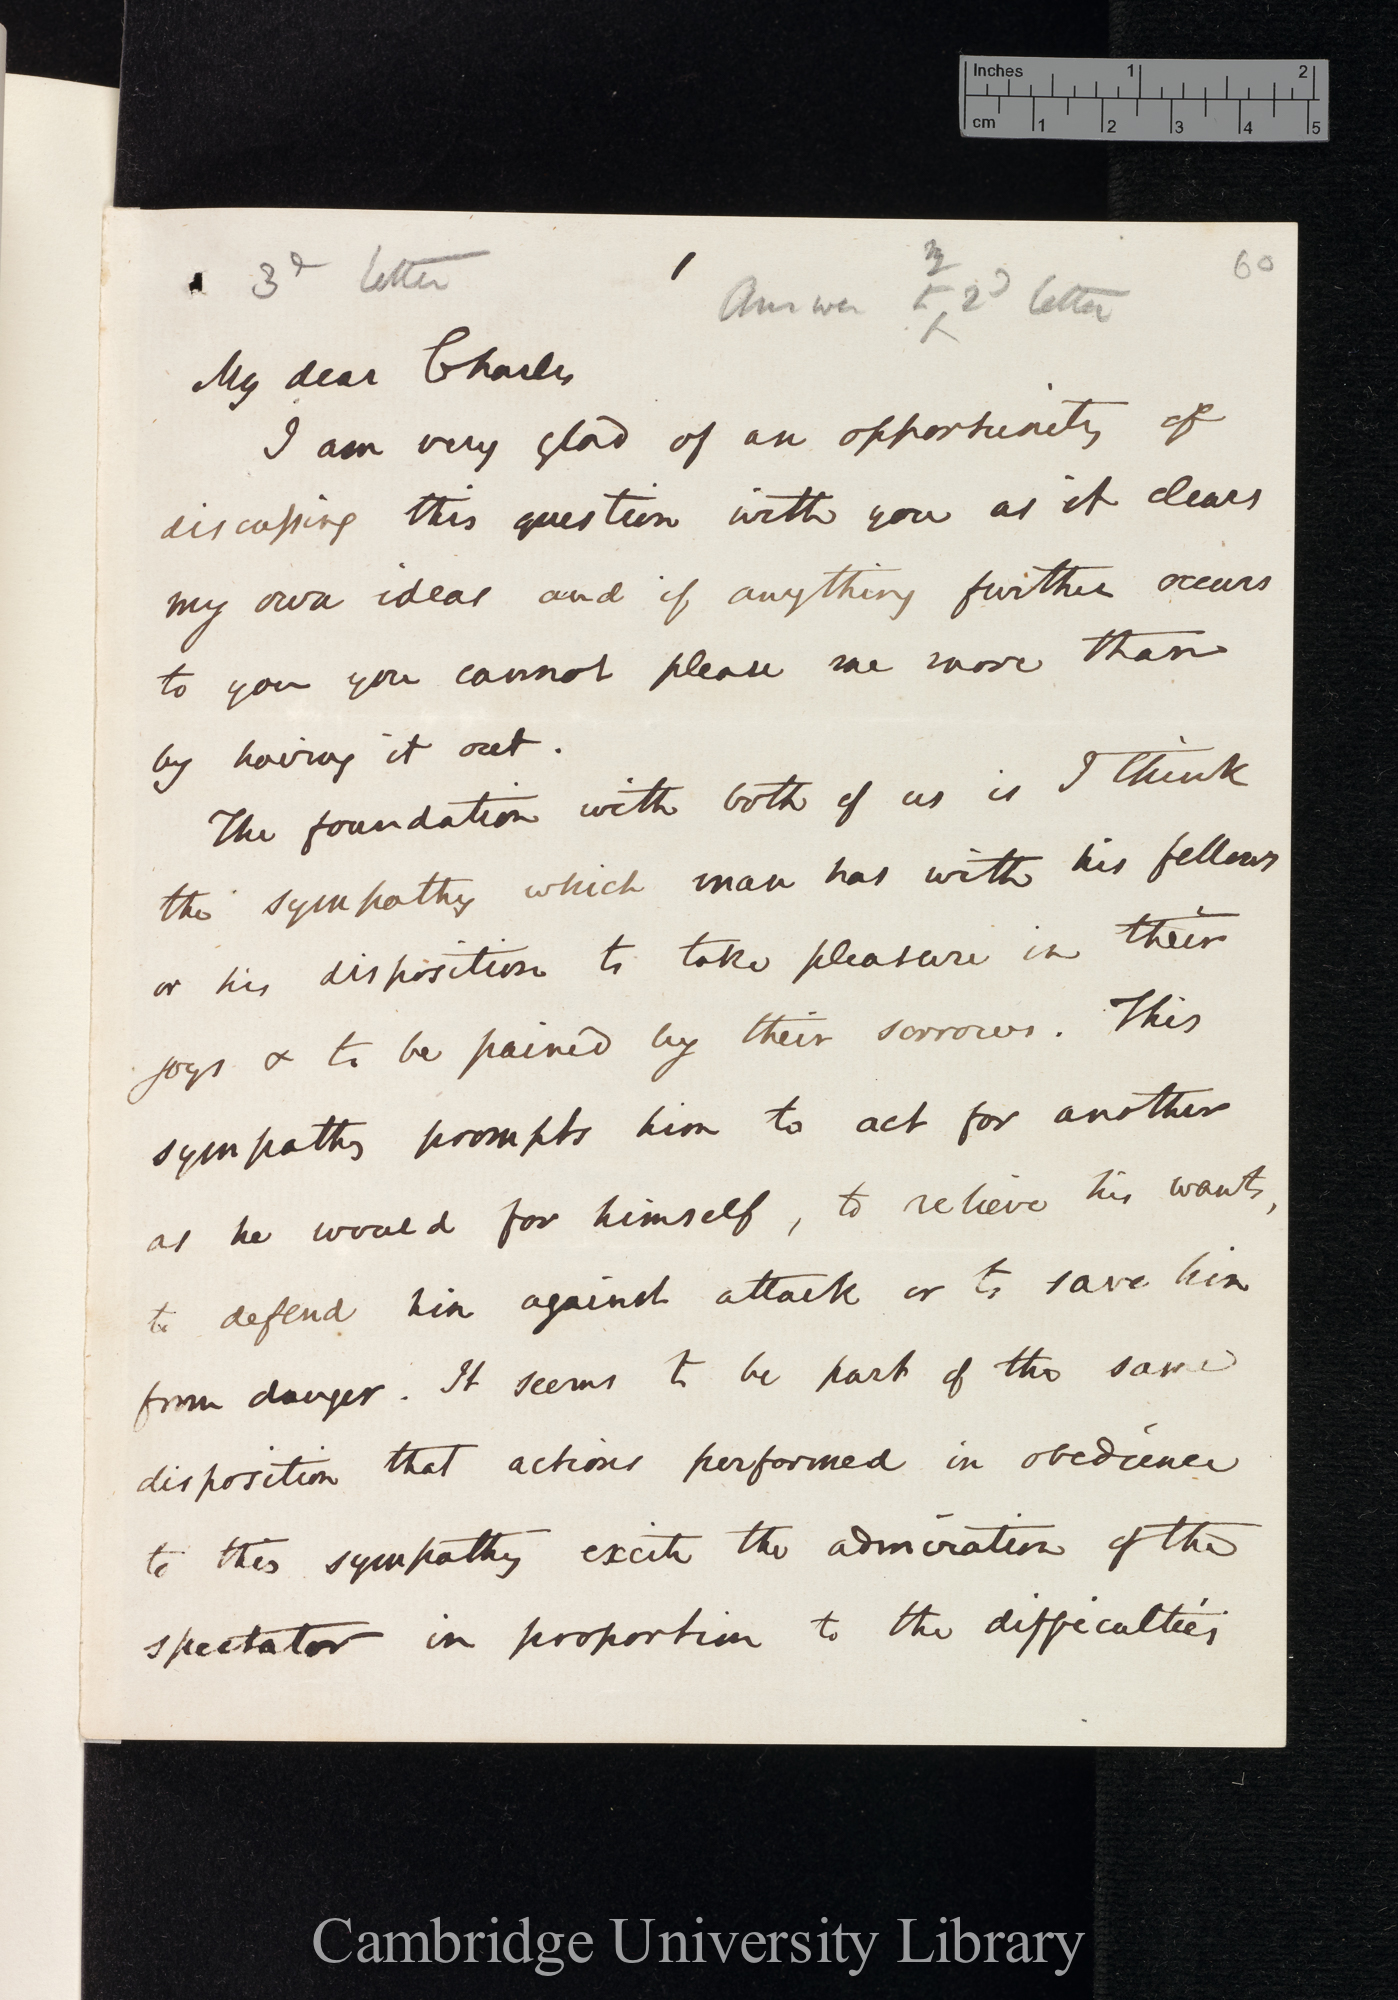 Inches 1 2
cm 1 2 3 4 5
3d letter 1 60
Answer to 2d letter
My dear Charles
I am very glad of an opportunity of
discussing this question with you as it clears
my own ideas and if anything further occurs
to you you cannot please me more than
by having it out.
The foundation with both of us is I think
the sympathy which man has with his fellows
or his disposition to take pleasure in their
joys & to be pained by their sorrows. This
sympathy prompts him to act for another
as he would for himself, to relieve his wants,
to defend him against attack or to save him
from danger. It seems to be part of the same
disposition that actions performed in obedience
to this sympathy excite the admiration of the
spectator in proportion to the difficulties
Cambridge University Library